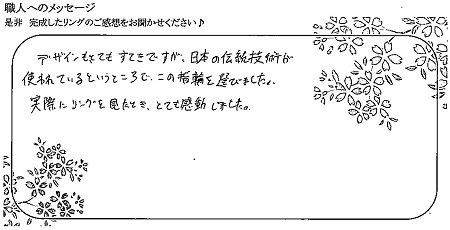 職人へのメッセージ
是非 完成したリングのご感想をお聞かせください♪
デザインもとてもすてきですが、日本の伝統技術が
使われているというところで、この指輪を選びました。
実際にリングを見たとき、とても感動しました。